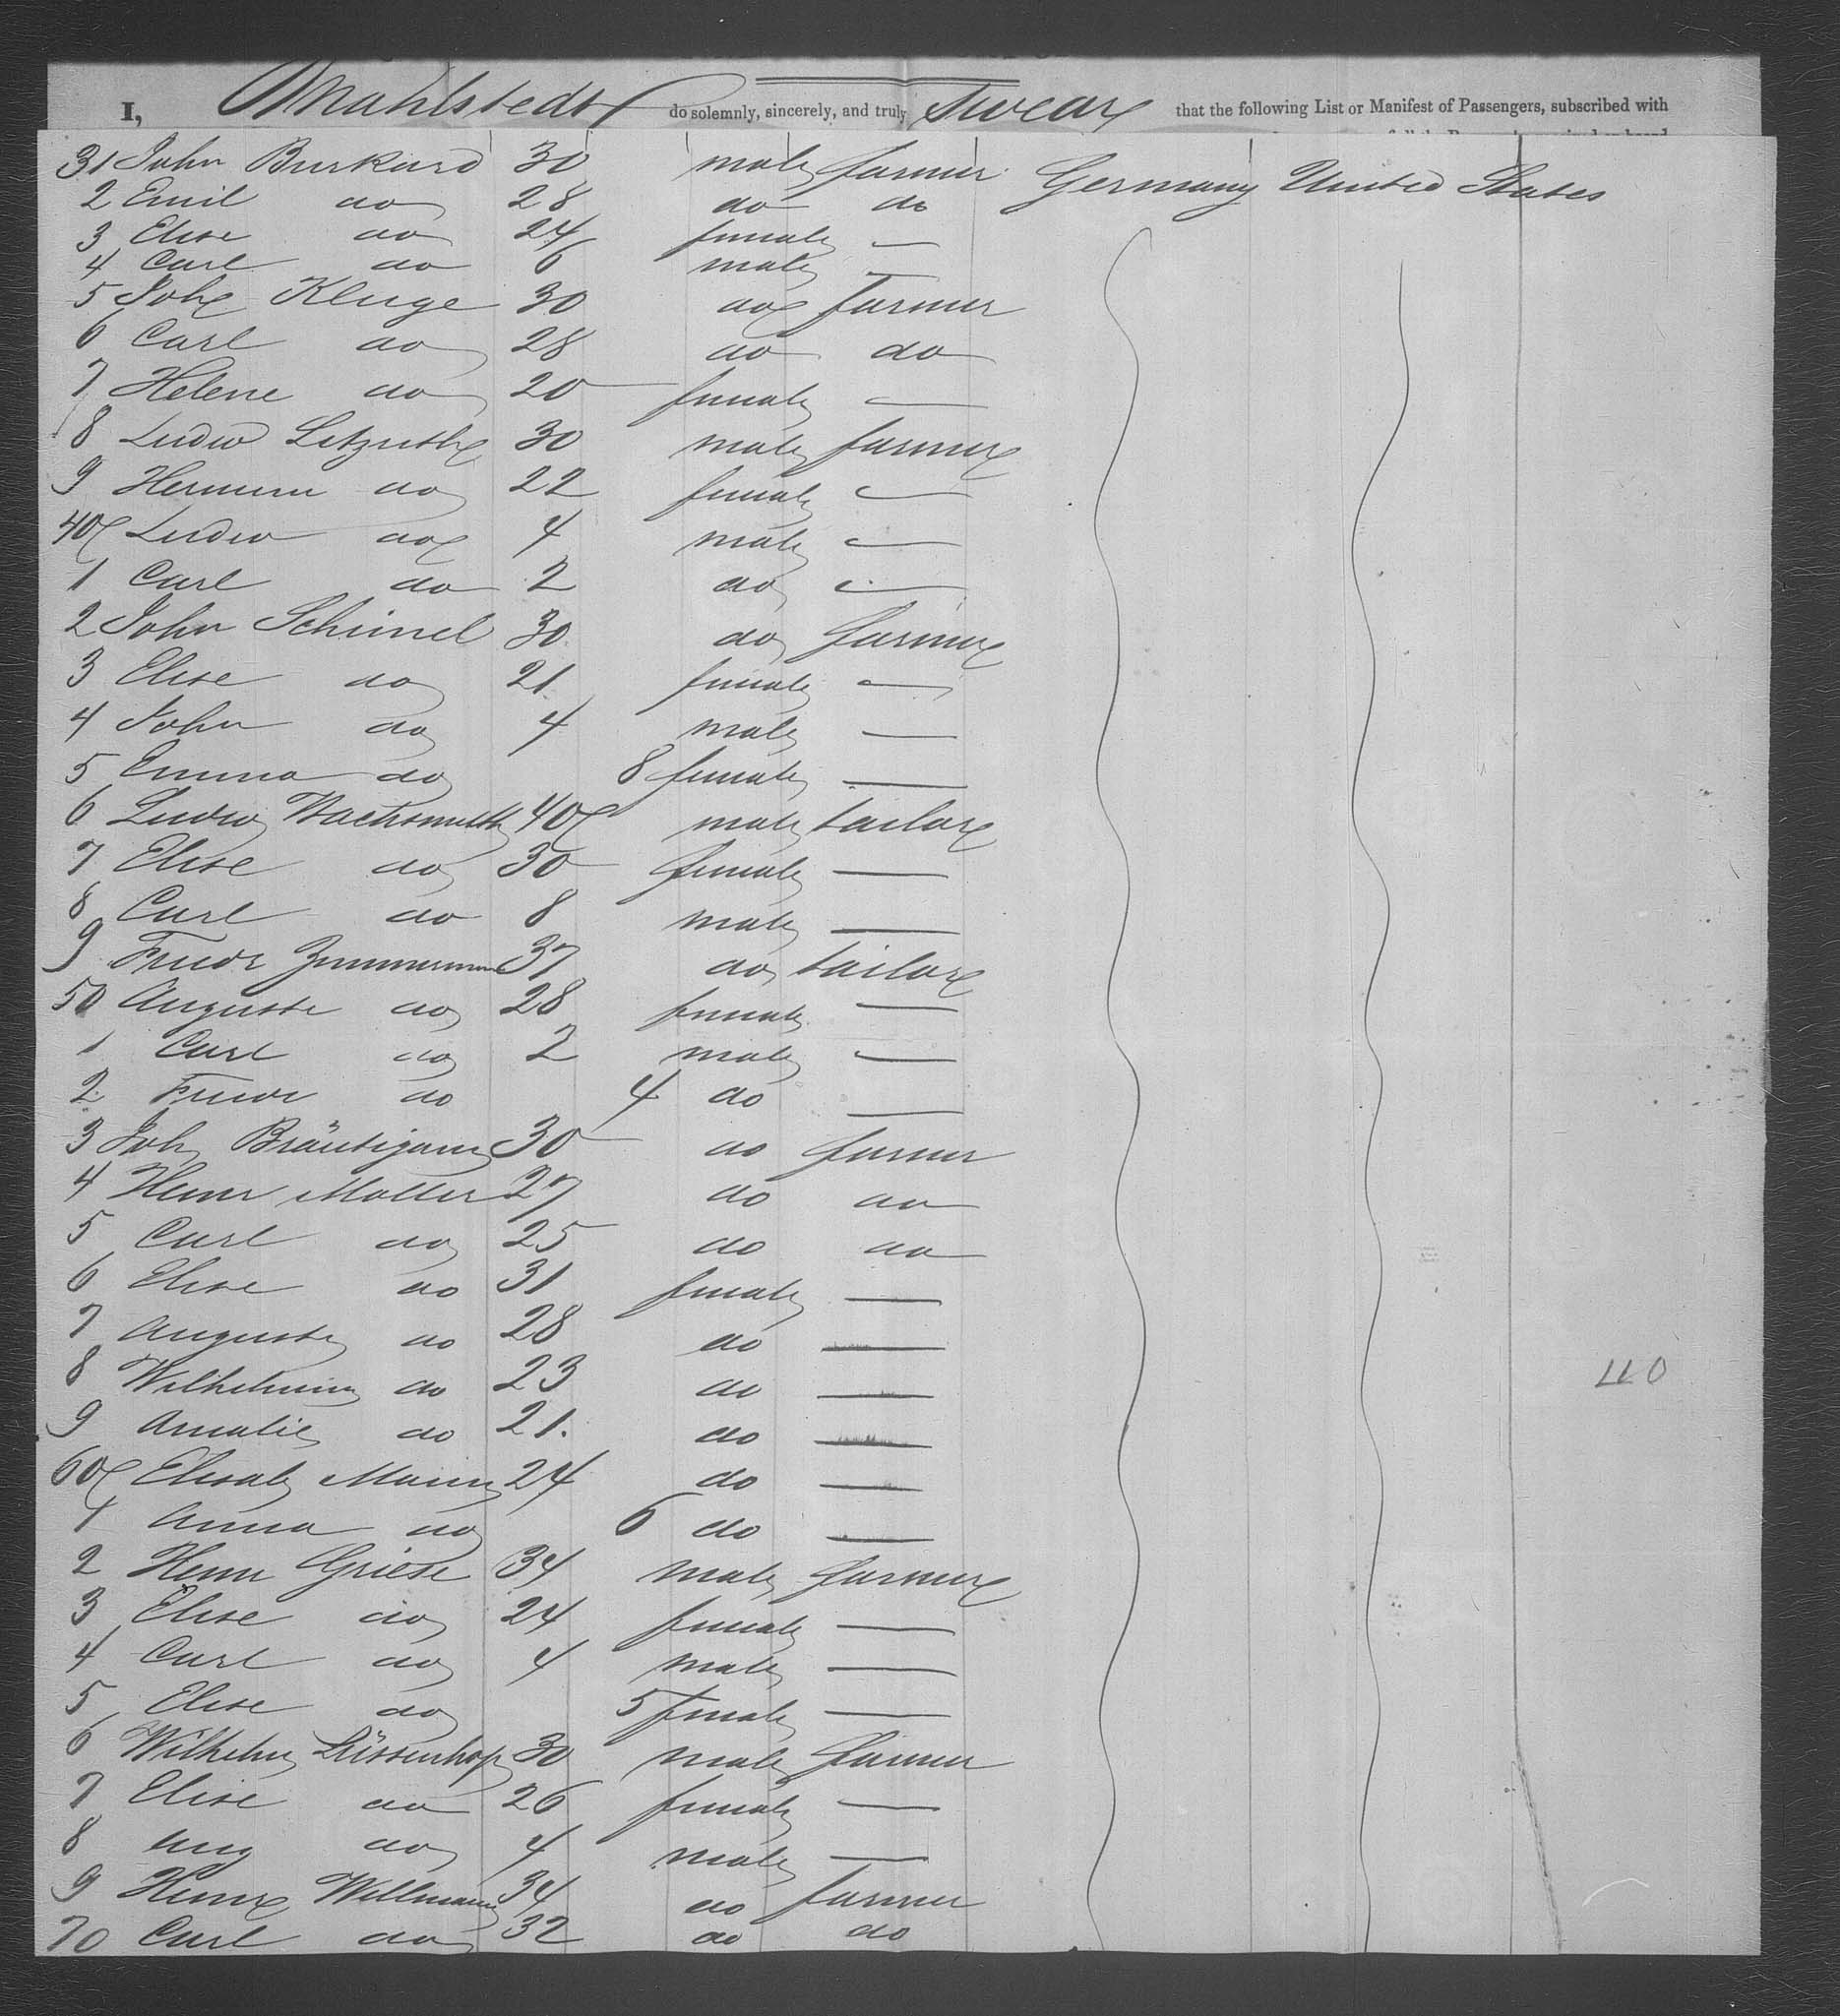 I, Mahlstedt do solemnly, sincerely, and truly swear that the following List or Manifest of Passengers, subscribed with
31 John Burkard 30 male farmer Germany United States
2 Emil do 28 do do
3 Elise do 24 female —
4 Carl do 6 male —
5 Joh Kluge 30 do farmer
6 Carl do 28 do do
7 Helene do 20 female —
8 Ludw 30 male farmer
9 Hermin do 22 female —
40 Ludw do 4 male —
1 Carl do 2 do —
2 John Schimel 30 do farmer
3 Elise do 21 female —
4 John do 4 male —
5 Emma do 8 female —
6 Ludw Wachsmuth 40 male tailor
7 Elise do 30 female —
8 Carl do 8 male —
9 Friedr Zimmermann 37 do tailor
50 Auguste do 28 female —
1 Carl do 2 male —
2 Friedr do 4 do —
3 Joh Bräutigam 30 do farmer
4 Heinr Moller 27 do do
5 Carl do 25 do do
6 Elise do 31 female —
7 Auguste do 28 do —
8 Wilhelmin do 23 do —
9 Amalie do 21. do —
60 Elisab 24 do —
1 Anna do 6 do —
2 Heinr Griese 34 male farmer
3 Elise do 24 female —
4 Carl do 4 male —
5 Elise do 5 female —
6 Wilhelm Lüssenhop 30 male farmer
7 Elise do 26 female —
8 Aug do 4 male —
9 Heinr Willmann 34 do farmer
70 Carl do 32 do do